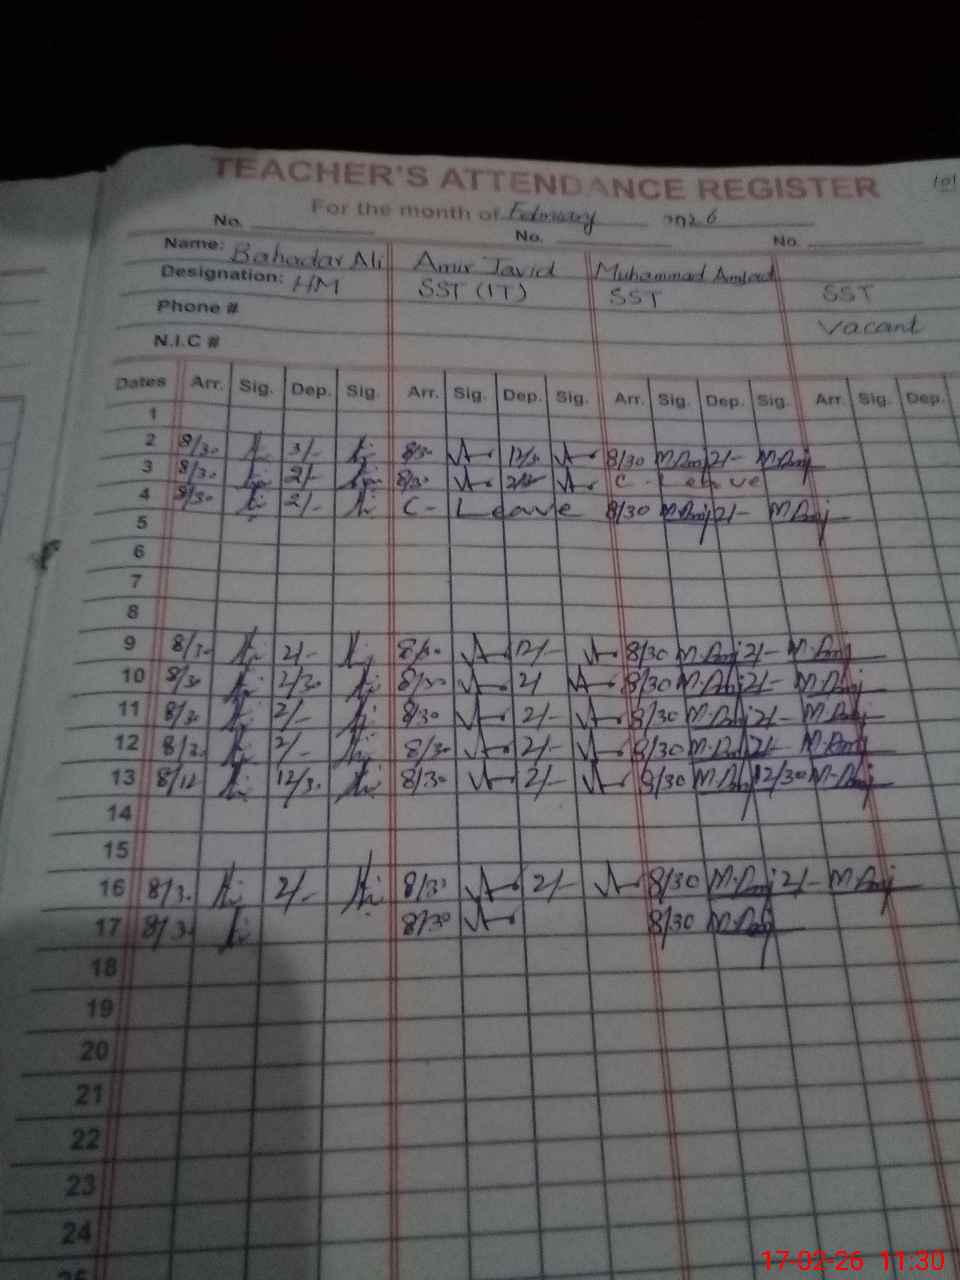 TEACHER'S ATTENDANCE REGISTER 101
For the month of February 2026
No. No. No.
Name: Bahadar Ali Amir Javid Muhammad Amjad
Designation: HM SST (IT) SST SST
Phone # Vacant
N.I.C #
Dates Arr. Sig. Dep. Sig. Arr. Sig. Dep. Sig. Arr. Sig. Dep. Sig. Arr. Sig. Dep.
1
2 8/30 3/- 8/30 12/30 8/30 M.Amj 2/- M.Amj
3 8/30 2/- 8/30 C-Leave
4 8/30 2/- C-Leave 8/30 M.Amj 2/- M.Amj
5
6
7
8
9 8/3- 2/- 8/30 12/- 8/30 M.Amj 2/- M.Amj
10 8/30 2/30 8/30 2/ 8/30 M.Amj 2/- M.Amj
11 8/30 2/- 8/30 2/- 8/30 M.Amj 2/- M.Amj
12 8/3. 2/- 8/30 2/- 8/30 M.Amj 2/- M.Amj
13 8/12 12/3. 8/30 2/- 8/30 M.Amj 12/30 M.Amj
14
15
16 8/3. 2/- 8/30 2/- 8/30 M.Amj 2/- M.Amj
17 8/3. 8/30 8/30 M.Amj
18
19
20
21
22
23
24
25
17-02-26 11:30